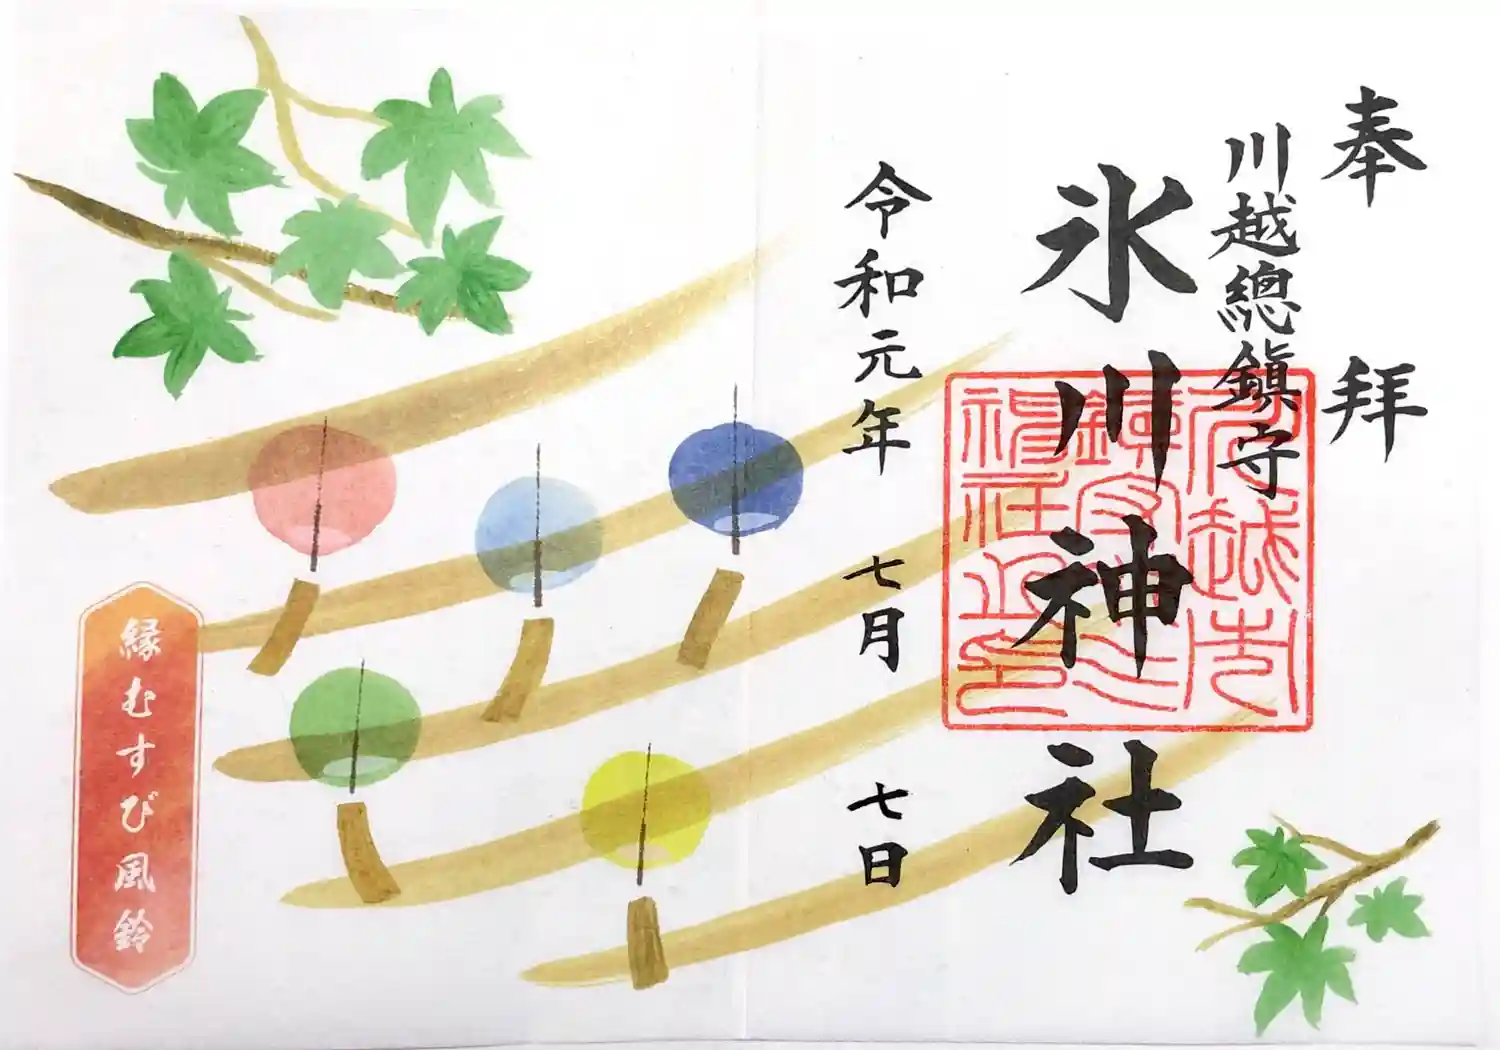 奉拝
川越總鎮守
氷川神社
令和元年 七月 七日
縁むすび風鈴